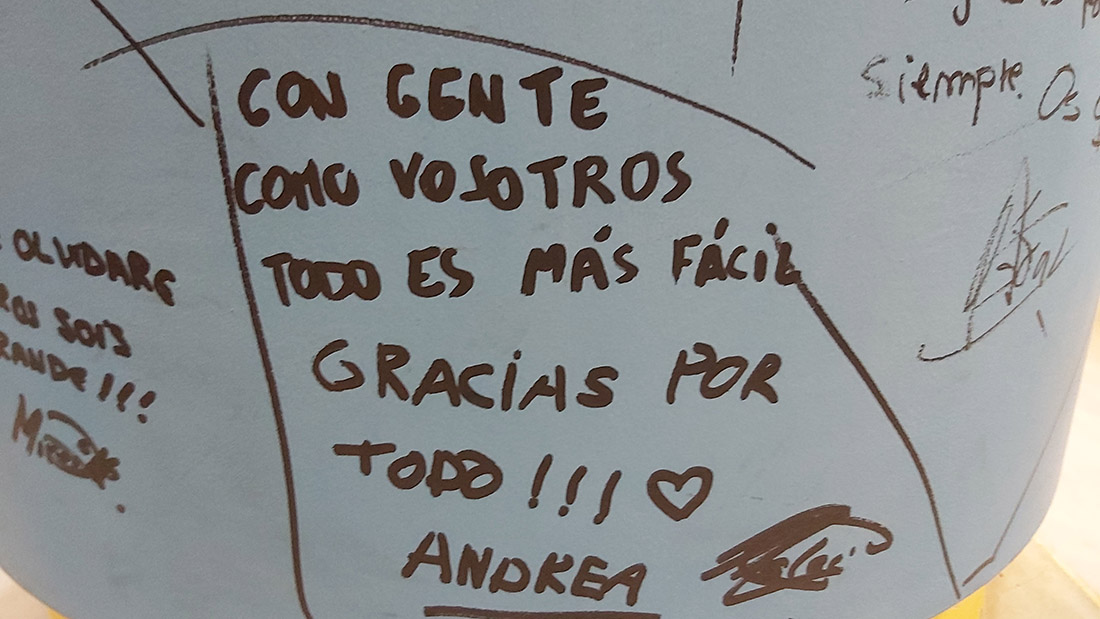 CON GENTE
COMO VOSOTROS
TODO ES MÁS FÁCIL
GRACIAS POR
TODO!!! ♡
ANDREA
OLVIDARE
SOIS
!!!
siempre. Os